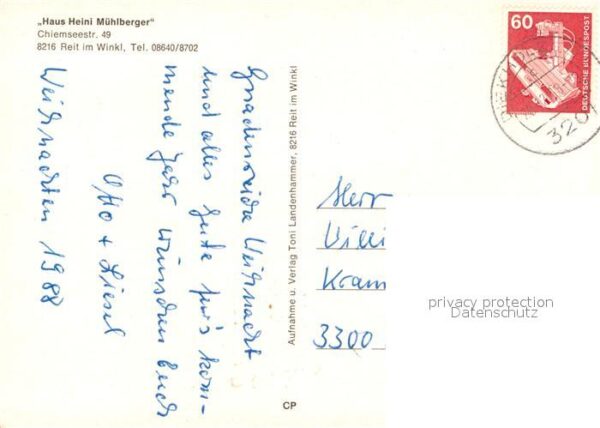 „Haus Heini Mühlberger"
Chiemseestr. 49
8216 Reit im Winkl, Tel. 08640/8702
Gnadenreiche Weihnacht
und alles Gute für's kom-
mende Jahr wünschen Euch
Otto + Liesel
Weihnachten 1988
Aufnahme u. Verlag Toni Landenhammer, 8216 Reit im Winkl
CP
60
DEUTSCHE BUNDESPOST
320
Herr
Willi
Kram
3300
privacy protection
Datenschutz